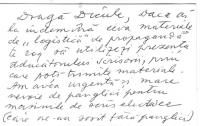 Dragă Dinule, Dacă ai
la îndemînă ceva materiale
de "logistică" de propagandă
te rog să utilizezi prezenţa
aducătorului scrisorii, prin
care poţi trimite materiale.
Am avea urgentă şi mare
nevoie de panglici pentru
maşinile de scris electrice
(care ne-au sosit fără panglici)